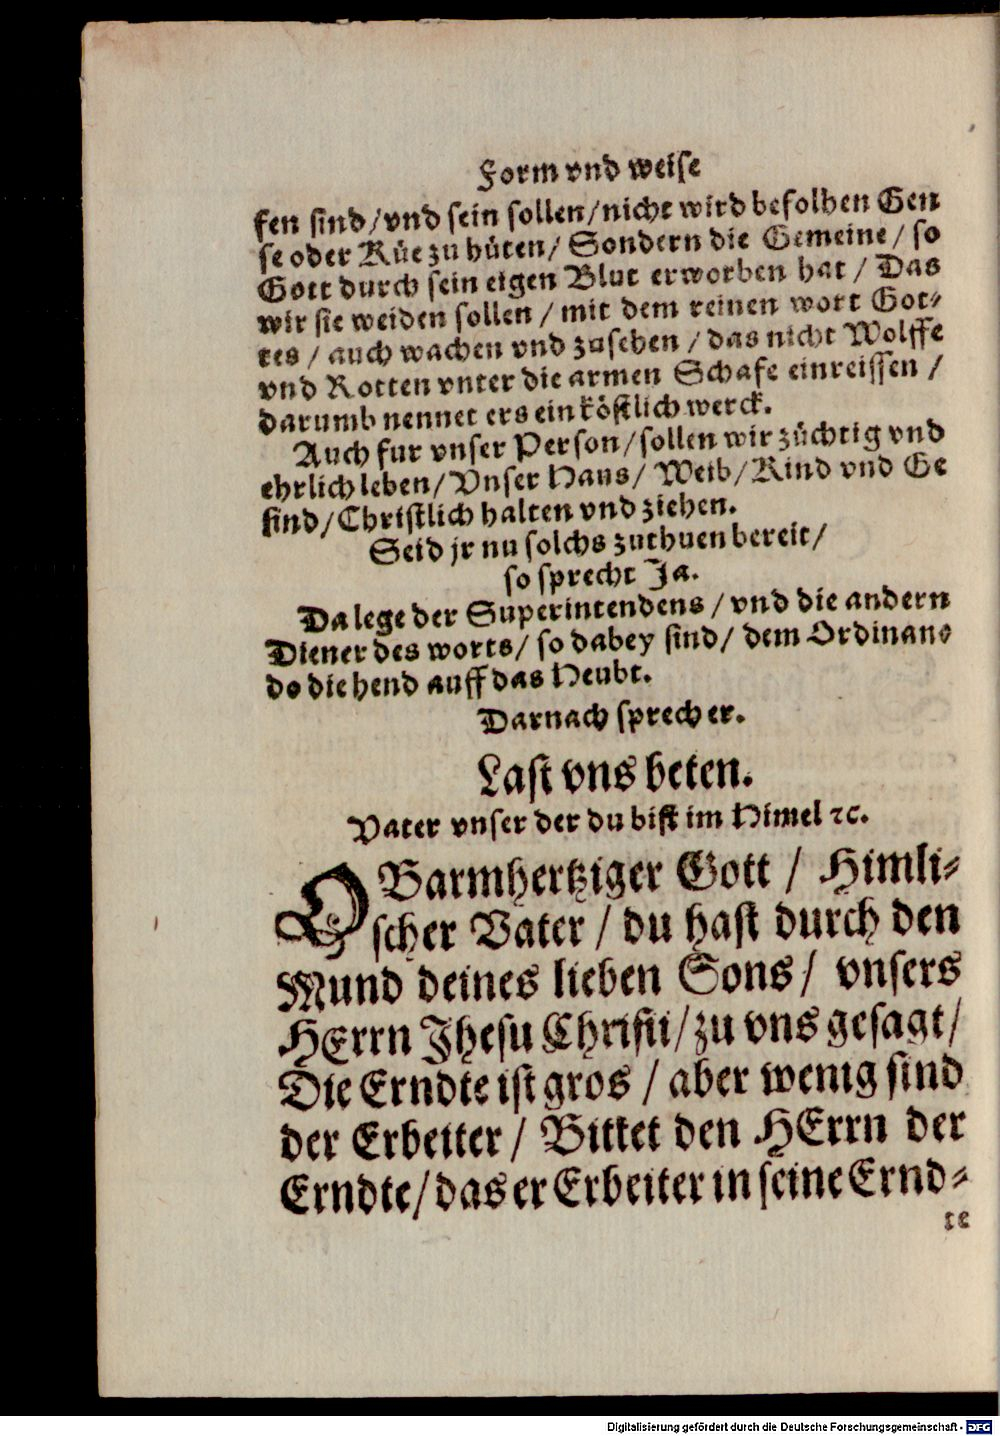 Form vnd weise
fen sind/vnd sein sollen/nicht wird befolhen Gen
se oder Küe zu hüten/ Sondern die Gemeine/ so
Gott durch sein eigen Blut erworben hat / Das
wir sie weiden sollen / mit dem reinen wort Got-
tes / auch wachen vnd zusehen / das nicht Wolffe
vnd Rotten vnter die armen Schafe einreissen /
darumb nennet ers ein köstlich werck.
Auch fur vnser Person/sollen wir züchtig vnd
ehrlich leben/Vnser Haus/ Weib/Kind vnd Ge
sind/Christlich halten vnd ziehen.
Seid jr nu solchs zuthuen bereit/
so sprecht Ja.
Da lege der Superintendens / vnd die andern
Diener des worts/ so dabey sind/ dem Ordinan-
do die hend auff das Heubt.
Darnach sprech er.
Last vns beten.
Vater vnser der du bist im Himel ꝛc.
O Barmhertziger Gott / Himli-
scher Vater / du hast durch den
Mund deines lieben Sons/ vnsers
HErrn Jhesu Christi/zu vns gesagt/
Die Erndte ist gros / aber wenig sind
der Erbeiter/ Bittet den HErrn der
Erndte/das er Erbeiter in seine Ernd-
te
Digitalisierung gefördert durch die Deutsche Forschungsgemeinschaft - DFG